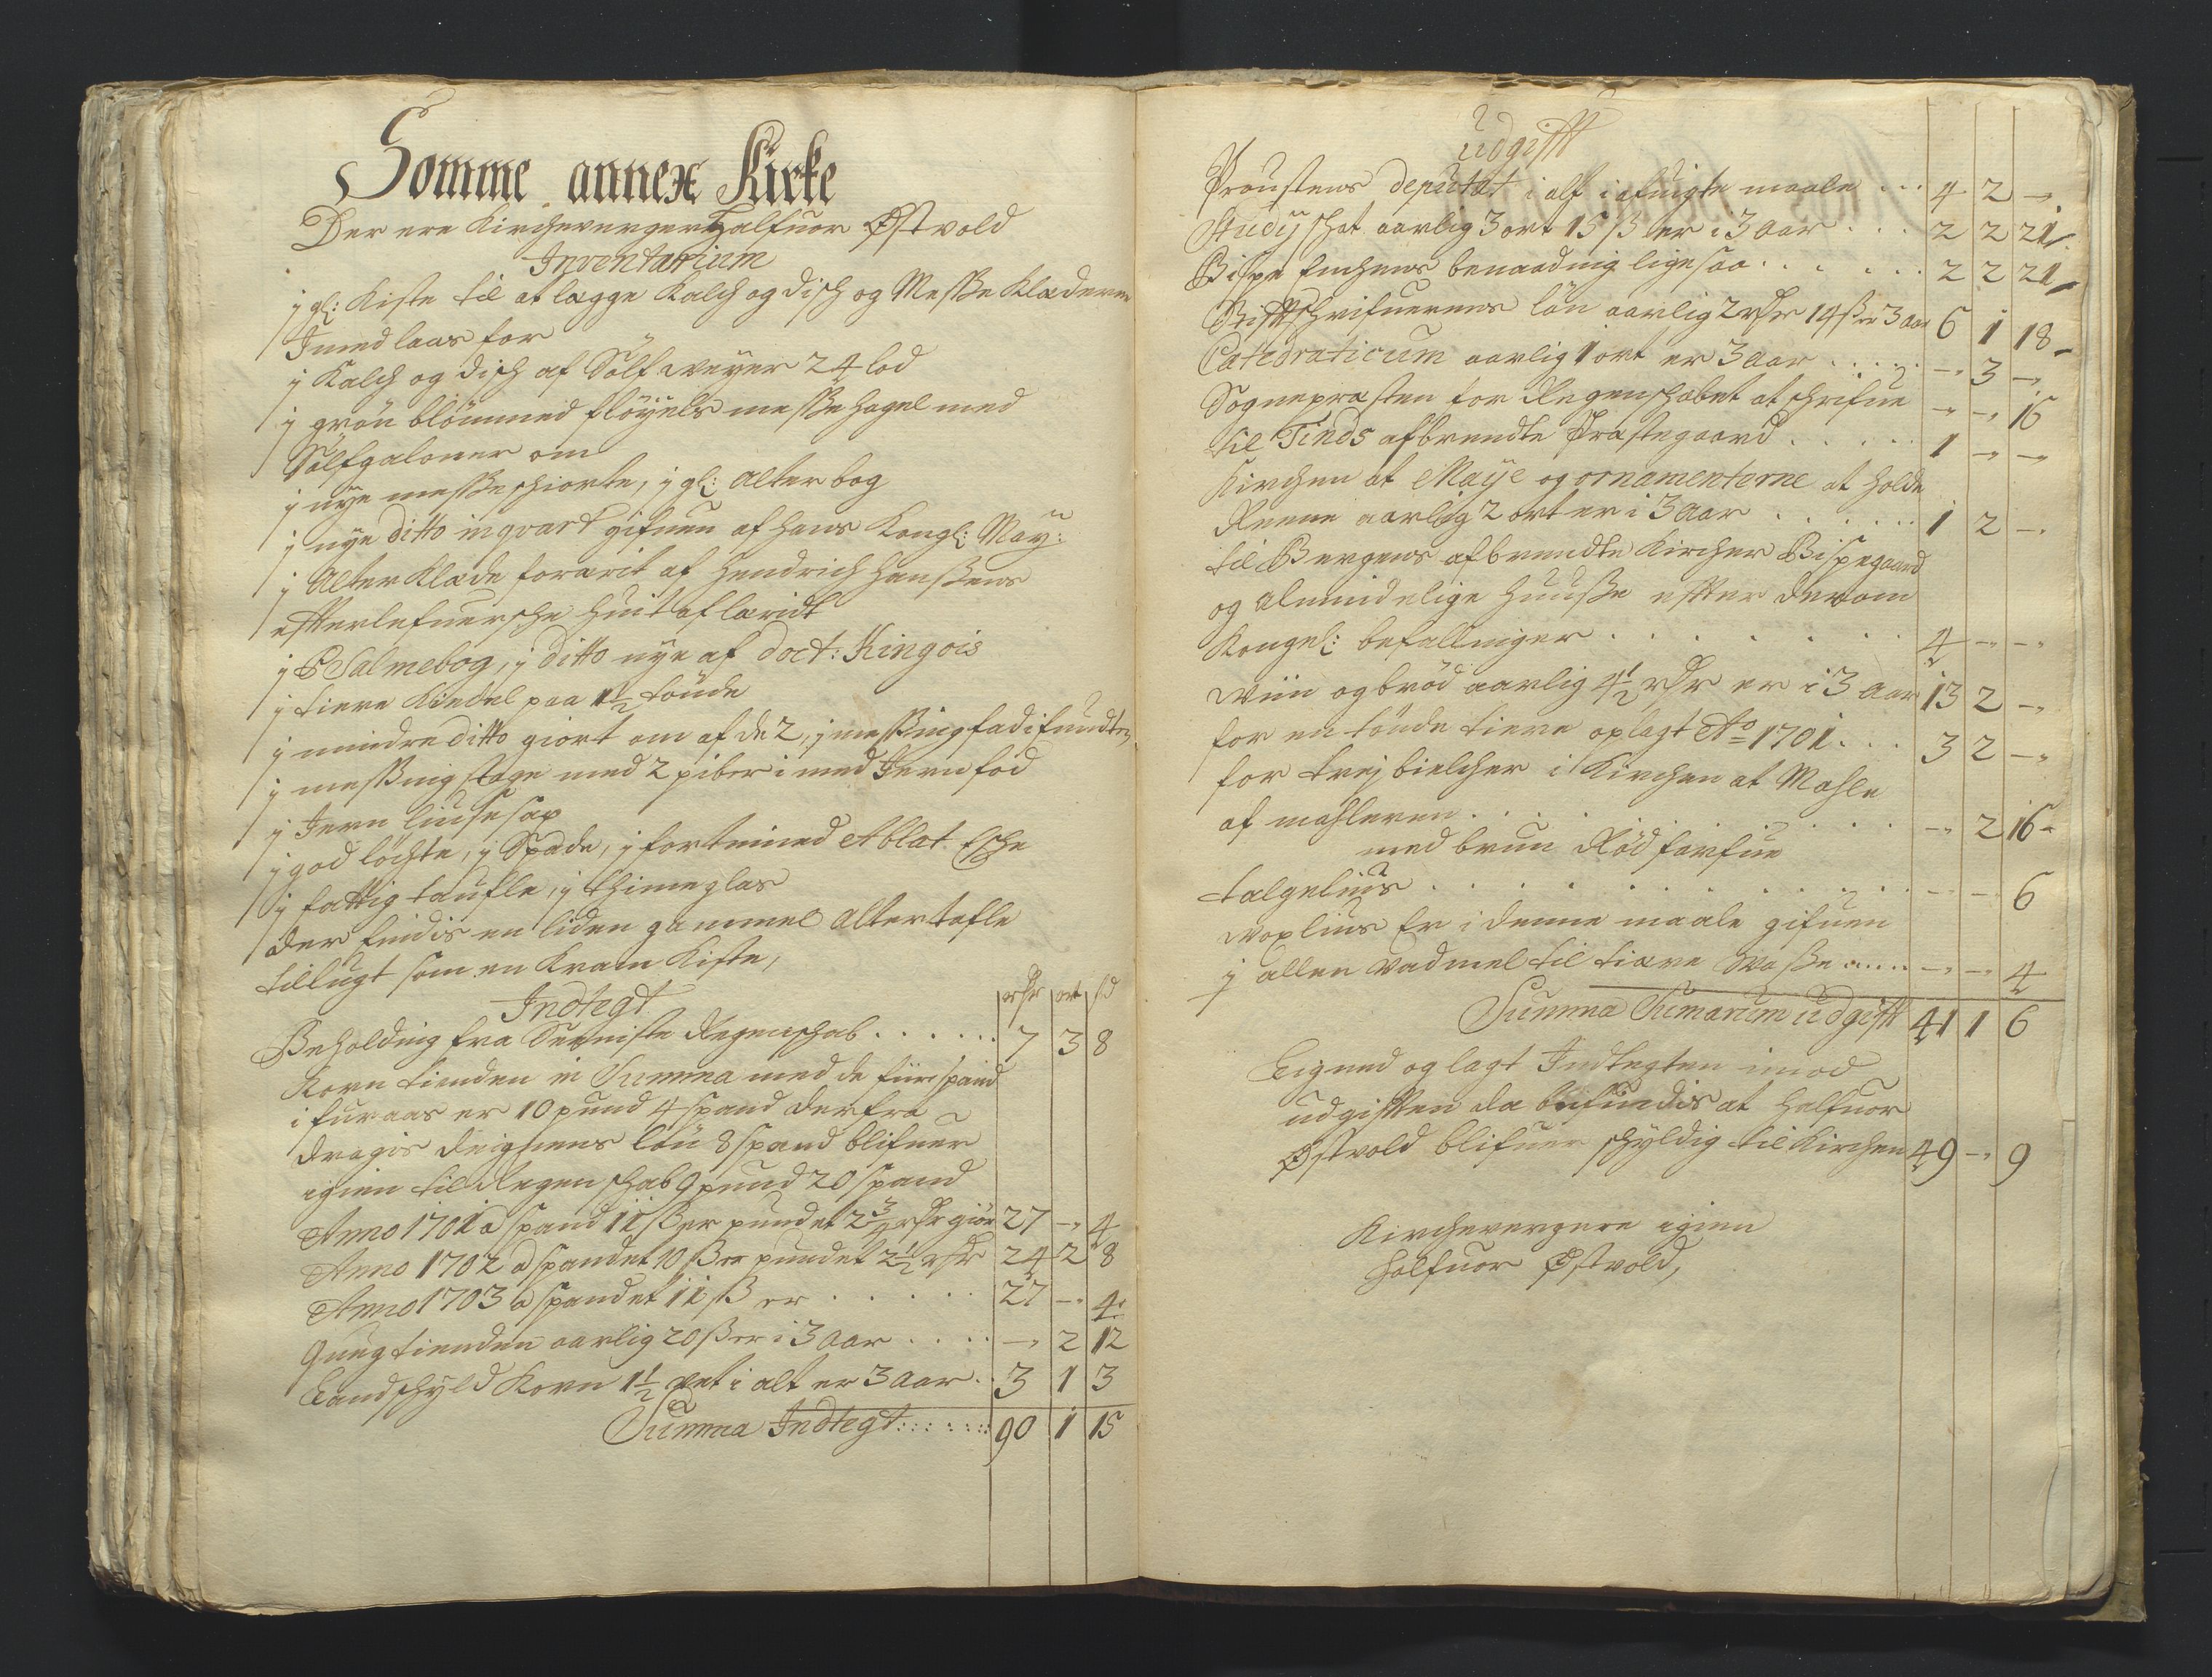 Somme annex Kirke
Der ere Kircheverger Halfuor Østvold
Inventarium
j gl: Kiste til at legge Kalch og disch og Messe Klæderne
I med laas for
j Kalch og disch af Sølf weyer 24 lod
j grøn blømmed fløyels messe hagel med
Sølfgaloner om
j nye messeschiorte, j gl: Alter bog
j nye ditto in qvart gifuen af hans Kongl: May:
j Alter Klæde forærit af Hendrich Hansens
efterlefuersche huit aflæridt
j PSalmebog, j ditto nye af doct: Kingois
j tiere Kiedel paa 1½ tønde
j mindre ditto giort om af de 2, j messing fad i fundten
j messing stage med 2 piber i med Jern fod
j Jern liuse sax
j god løchte, j Spade, j fortinned Ablat Esche
j fattig taufle, j thimeglas
der findis en liden gammel alter tafle
tillugt som en Kram Kiste,
Indtegt
rdr ort sd
Beholding fra Seeniste Regenschab . . . . . . 7 3 8
Korn tienden in Summa med de fiire spand
i furaas er 10 pund 4 spand derfra
dragis deignens løn 8 spand blifuer
igien til Regenschab 9 pund 20 spand
Anno 1701 a spand 11 ß er pundet 2¾ rdr giør 27 - 4
Anno 1702 a spandet 10 ß er pundet 2½ rdr 24 2 8
Anno 1703 a spandet 11 ß er . . . . . 27 - 4
Quegtienden aarlig 20 ß er i 3 aar . . . . - 2 12
Landschyld Korn 1½ et i alt er 3 aar . 3 1 3
Summa Indtegt 90 1 15
udgifft
Proustens deputat i alt i afuigte maale . . . 4 2 -
Studij schat aarlig 3 ort 15 ß er i 3 aar . . . 2 2 21
Bispe Enchens benaading ligesaa . . . . . . 2 2 21
Stiftschrifuerens løn aarlig 2 rdr 14 ß er 3 aar 6 1 18
Catedraticum aarlig 1 ort er 3 aar . . . . . - 3 -
Sognepræsten for Regenschabet at schrifue - - 16
til Tinds afbrendte Præstegaard . . . . . 1 - -
Kirchen at Maye og ornamenterne at holde
Reene aarlig 2 ort er i 3 aar . . . . . . 1 2 -
til Bergens afbrendte Kircher Bispegaard
og almindelige Huuse efter derom
Kongel: befallinger . . . . . . . 4 - -
wiin og brød aarlig 4½ rdr er i 3 aar 13 2 -
for en tønde tiere oplagt Ao 1701 . . . 3 2 -
for trej bielcher i Kirchen at Mahle
af mahleren . . . . . . . . . - 2 16
med brun Rød farfue
talgeliuus . . . . . . . . . . - - 6
woxliuus Er i denne maale gifuen
j allen vadmel til tiære wasse . . . . - - 4
Summa Sumarum udgifft 41 1 6
Lignend og lagt Indtegten imod
udgiften da befindis at Halfuor
Østvold blifuer schyldig til Kirchen 49 - 9
Kircheverger igien
Halfuor Østvold,